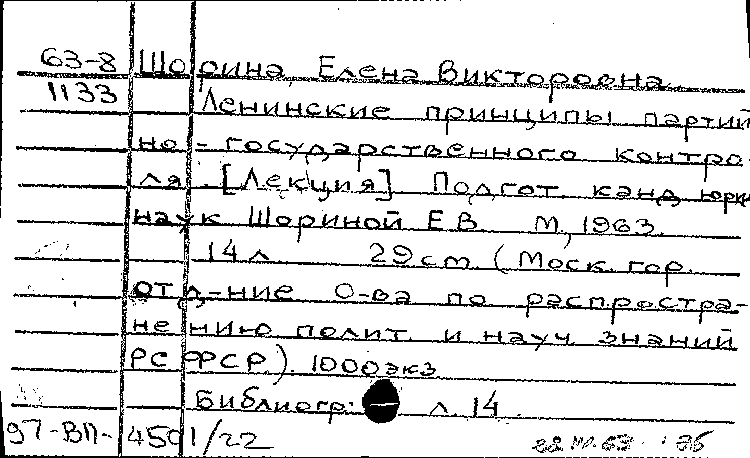 63-8 Шорина, Елена Викторовна.
1133 Ленинские принципы партий
но-государственного контро-
ля. [Лекция] Подгот. канд. юрид.
наук Шориной Е.В. М., 1963.
14 л. 29 см. (Моск. гор.
отд-ние О-ва по распростра-
нению полит. и науч. знаний
РСФСР). 1000 экз.
Библиогр: л. 14.
97-ВП-4501/22